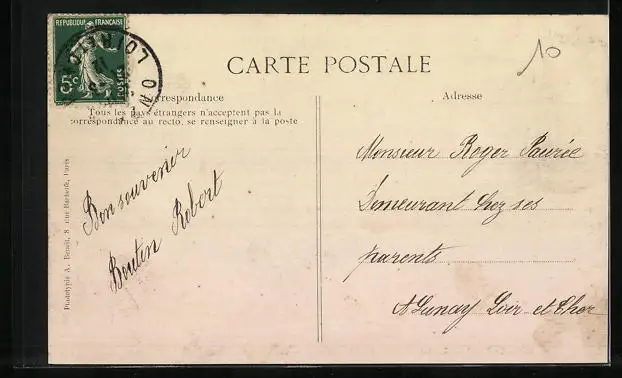 REPUBLIQUE FRANÇAISE
5c
POSTES
10
CARTE POSTALE
Correspondance
Tous les pays étrangers n'acceptent pas la
correspondance au recto, se renseigner à la poste
Adresse
Bon souvenir
Boutin Robert
Monsieur Roger Paurée
Demeurant chez ses
parents
A Lunay Loir et Cher
Phototypie A. Benoît, 8 rue Paris